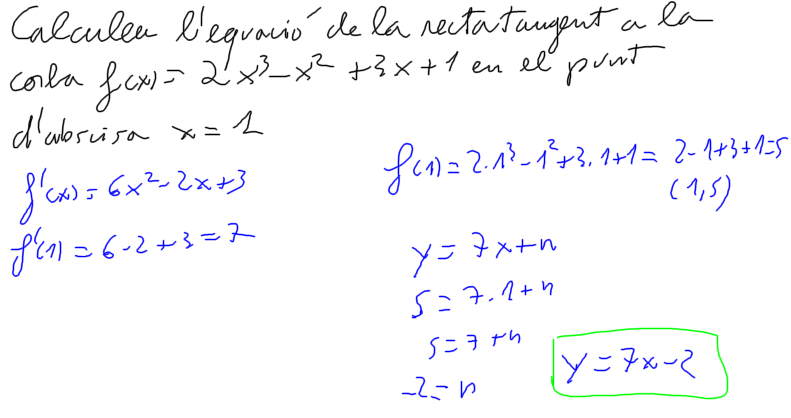 Calculeu l'equació de la recta tangent a la
corba f(x) = 2x³ - x² + 3x + 1 en el punt
d'abscissa x = 1
f'(x) = 6x² - 2x + 3
f'(1) = 6 - 2 + 3 = 7
f(1) = 2·1³ - 1² + 3·1 + 1 = 2 - 1 + 3 + 1 = 5
(1,5)
y = 7x + n
5 = 7·1 + n
5 = 7 + n
-2 = n
y = 7x - 2